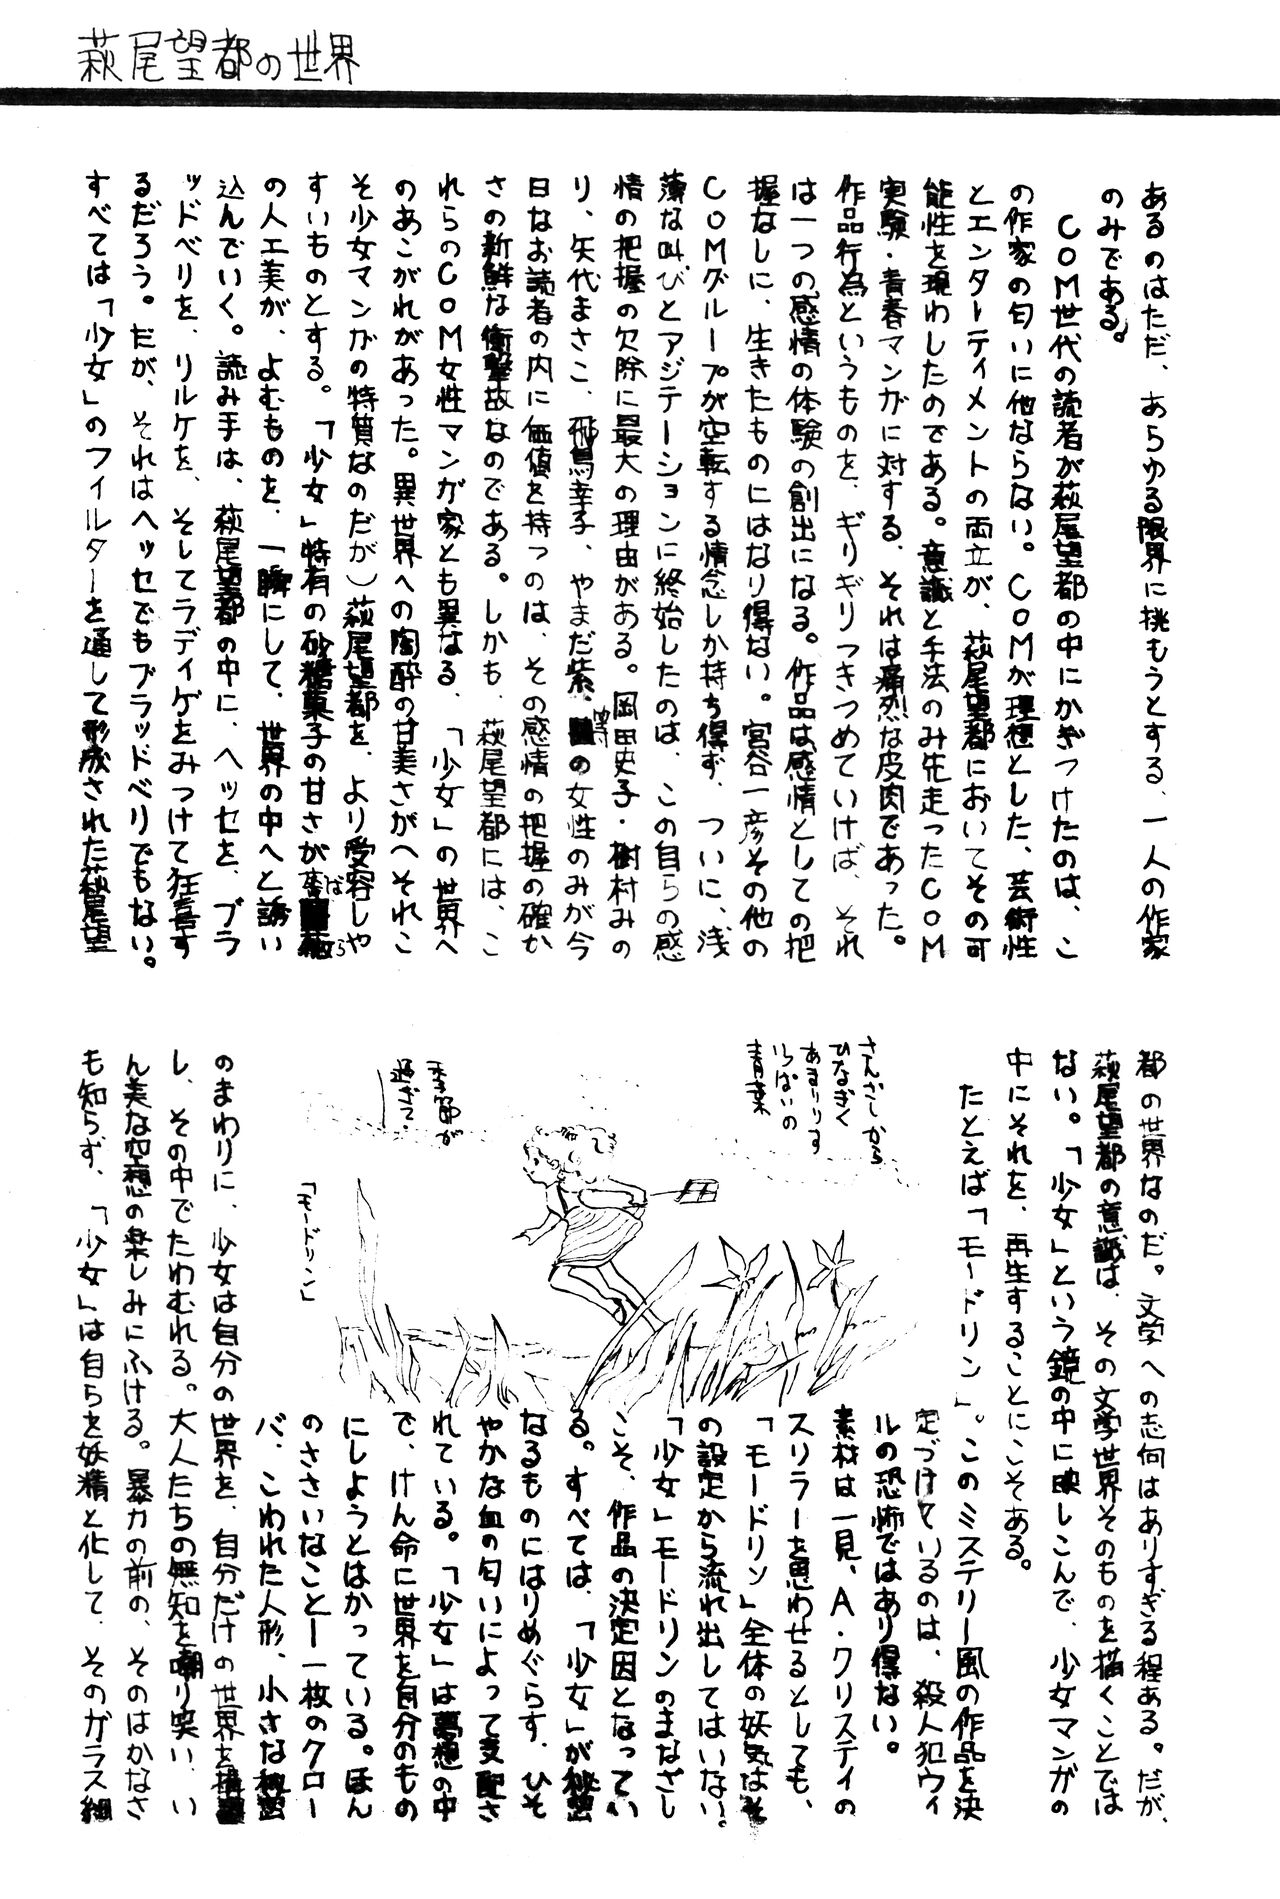 萩尾望都の世界
あるのはただ、あらゆる限界に挑もうとする、一人の作家
のみである。
COM世代の読者が萩尾望都の中にかぎつけたのは、こ
の作家の匂いに他ならない。COMが理想とした、芸術性
とエンターティメントの両立が、萩尾望都においてその可
能性を現わしたのである。意識と手法のみ先走ったCOM
実験・青春マンガに対する、それは痛烈な皮肉であった。
作品行為というものを、ギリギリつきつめていけば、それ
は一つの感情の体験の創出になる。作品は感情としての把
握なしに、生きたものにはなり得ない。宮谷一彦その他の
COMグループが空転する情念しか持ち得ず、ついに、浅
薄な叫びとアジテーションに終始したのは、この自らの感
情の把握の欠除に最大の理由がある。岡田史子・樹村みの
り、矢代まさこ、飛鳥幸子、やまだ紫、等の女性のみが今
日なお読者の内に価値を持つのは、その感情の把握の確か
さの新鮮な衝撃故なのである。しかも、萩尾望都には、こ
れらのCOM女性マンガ家とも異なる、「少女」の世界へ
のあこがれがあった。異世界への陶酔の甘美さが(それこ
そ少女マンガの特質なのだが)萩尾望都を、より受容しや
すいものとする。「少女」特有の砂糖菓子の甘さが、ばら
の人工美が、よむものを、一瞬にして、世界の中へと誘い
込んでいく。読み手は、萩尾望都の中に、ヘッセを、ブラ
ッドベリを、リルケを、そしてラディゲをみつけて狂喜す
るだろう。だが、それはヘッセでもブラッドベリでもない。
すべては「少女」のフィルターを通して形成された萩尾望
都の世界なのだ。文学への志向はありすぎる程ある。だが、
萩尾望都の意識は、その文学世界そのものを描くことでは
ない。「少女」という鏡の中に映しこんで、少女マンガの
中にそれを、再生することにこそある。
たとえば「モードリン」。このミステリー風の作品を決
定づけているのは、殺人犯ウィ
ルの恐怖ではあり得ない。
素材は一見、A・クリスティの
スリラーを思わせるとしても、
「モードリン」全体の妖気はそ
の設定から流れ出してはいない。
「少女」モードリンのまなざし
こそ、作品の決定因となってい
る。すべては、「少女」が秘密
なるものにはりめぐらす、ひそ
やかな血の匂いによって支配さ
れている。「少女」は夢想の中
で、けん命に世界を自分のもの
にしようとはかっている。ほん
のささいなこと―一枚のクロー
バ、こわれた人形、小さな秘密
のまわりに、少女は自分の世界を、自分だけの世界を構築
し、その中でたわむれる。大人たちの無知を嘲り笑い、い
ん美な空想の楽しみにふける。暴力の前の、そのはかなさ
も知らず、「少女」は自らを妖精と化して、そのガラス細
さんざしから
ひなぎく
あまりりす
いっぱいの
青葉
季節が
過ぎて、
「モードリン」